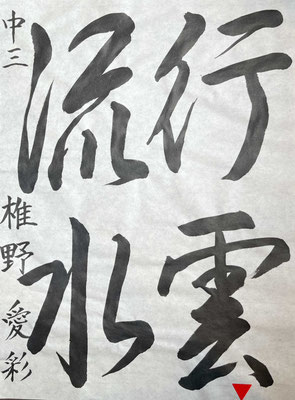 行雲
流水
中三 椎野愛彩